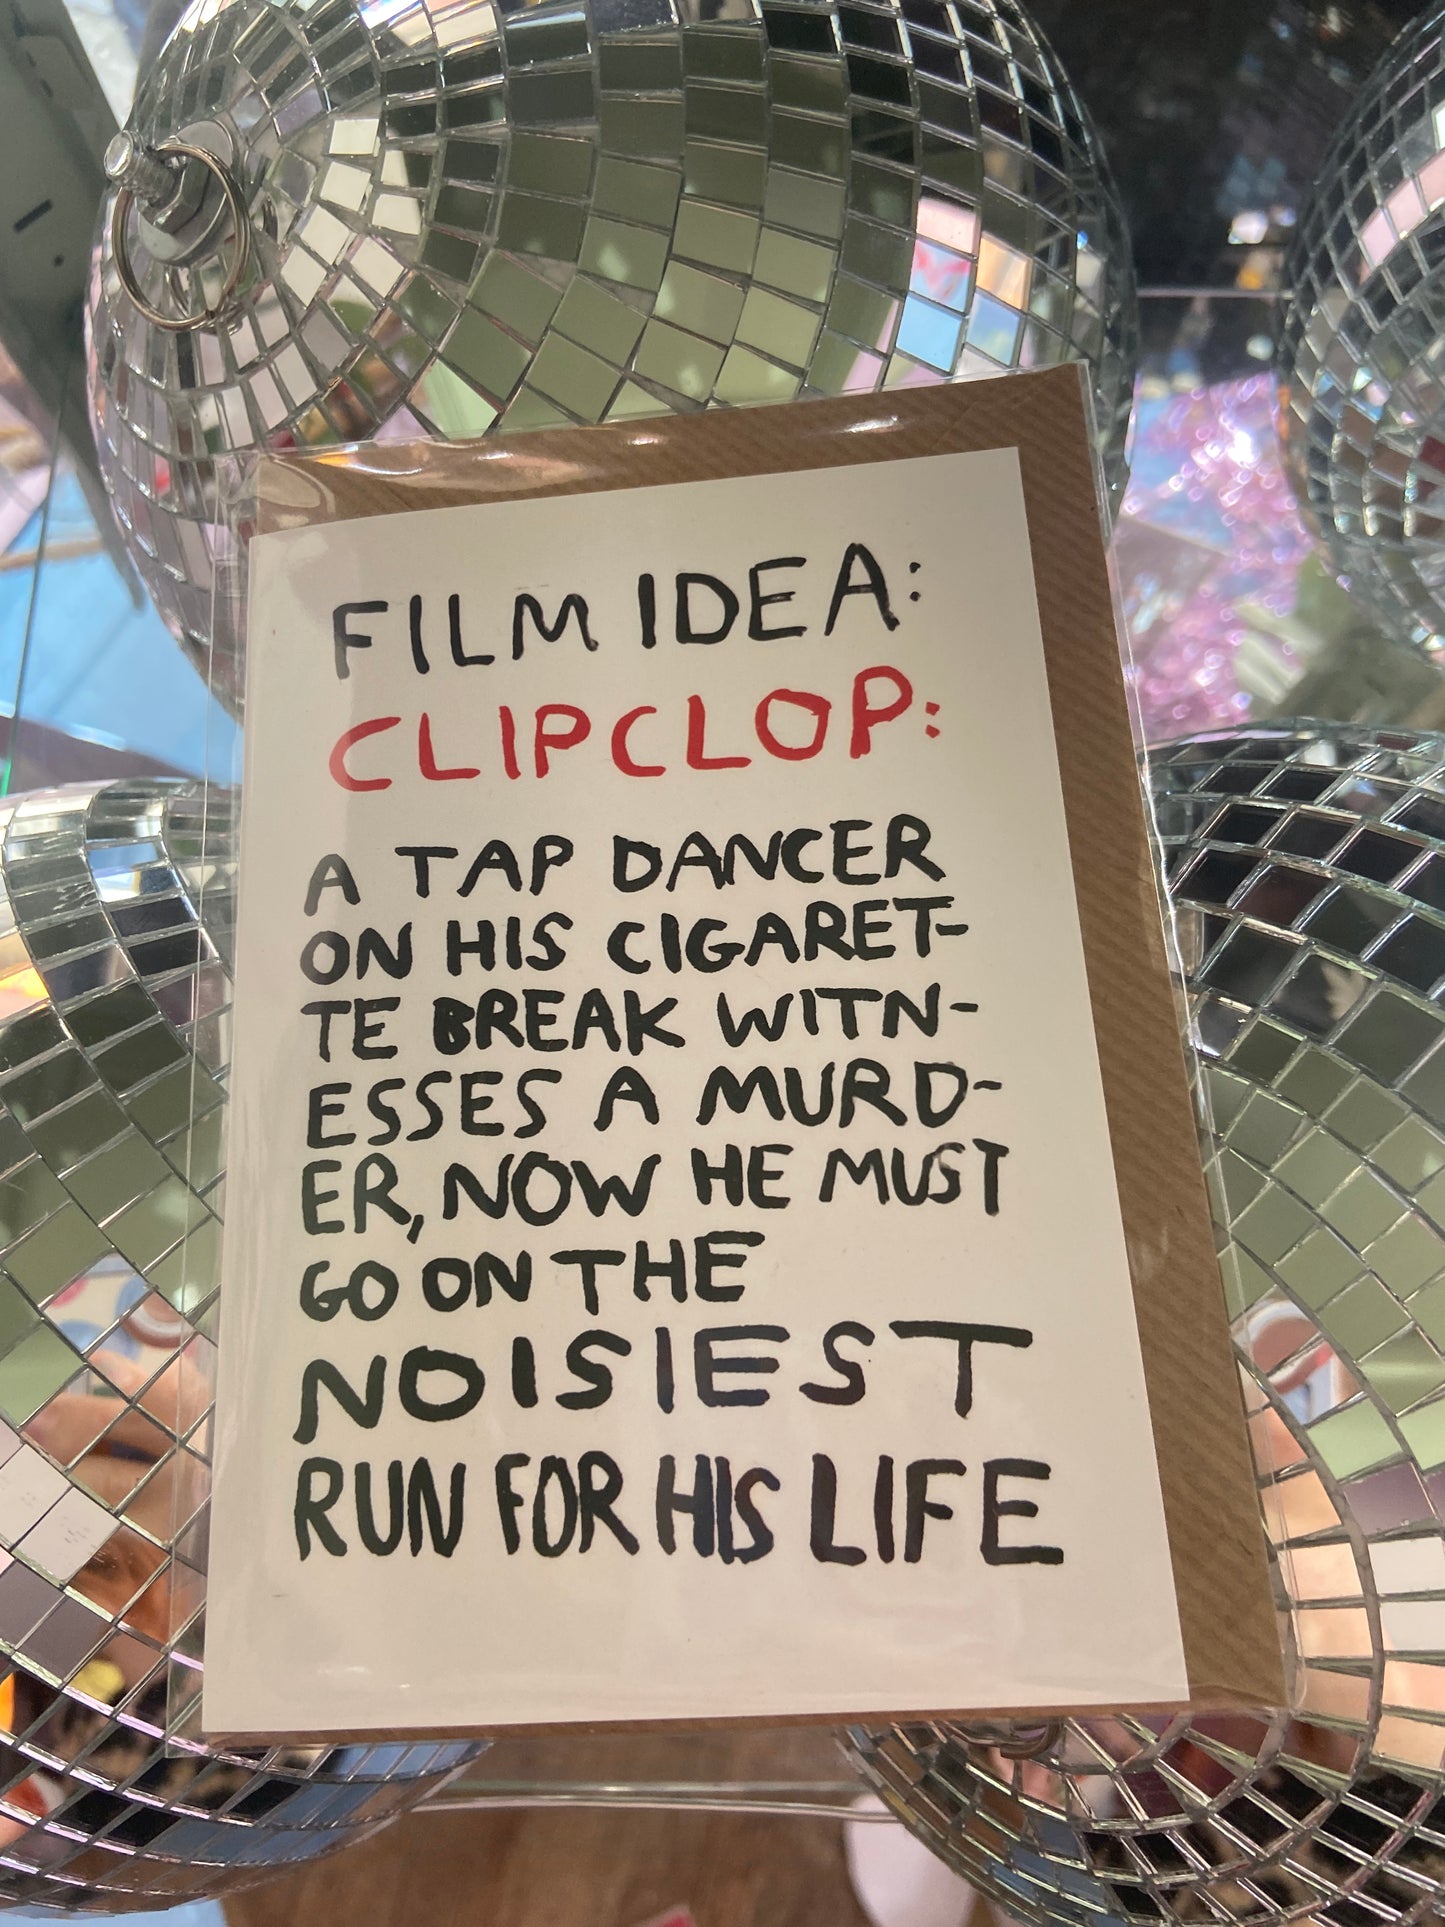 FILM IDEA:
CLIPCLOP:
A TAP DANCER
ON HIS CIGARET-
TE BREAK WITN-
ESSES A MURD-
ER, NOW HE MUST
GO ON THE
NOISIEST
RUN FOR HIS LIFE